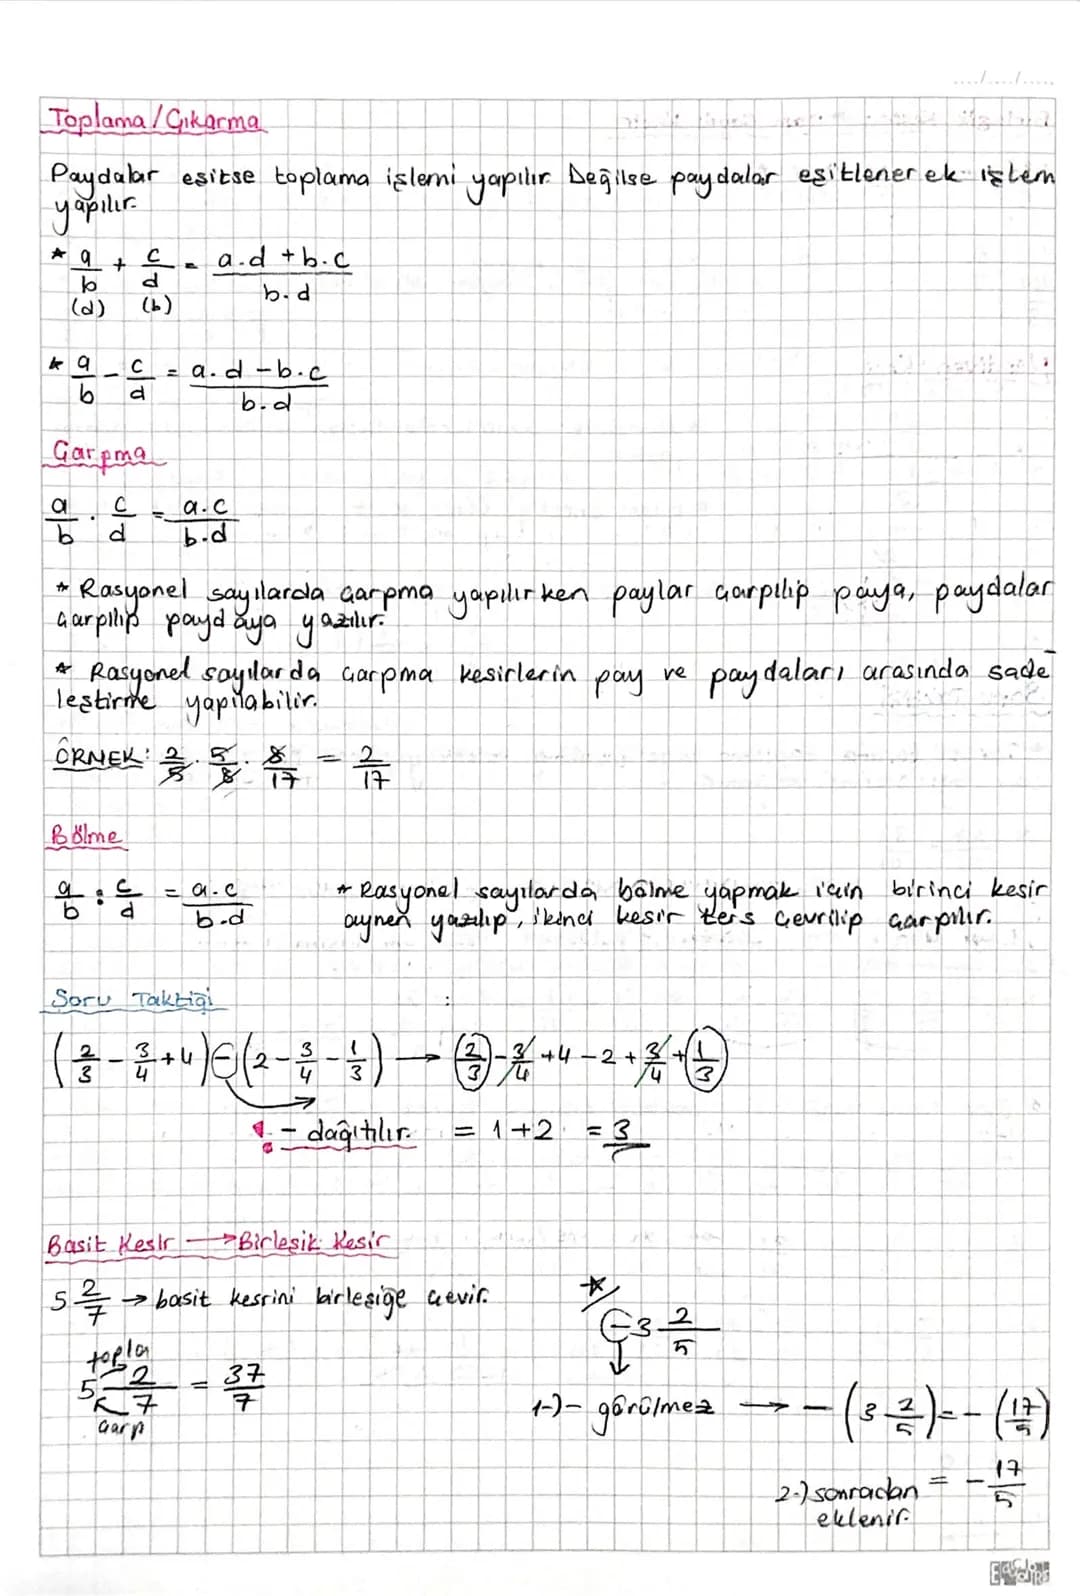 ..../..../.....
Toplama/Çıkarma
Paydalar eşitse toplama işlemi yapılır. Değilse paydalar eşitlenerek işlem
yapılır.
* a/b + c/d = a.d + b.c / b.d
(d) (b)
* a/b - c/d = a.d - b.c / b.d
Çarpma
a/b . c/d = a.c / b.d
* Rasyonel sayılarda çarpma yapılırken paylar çarpılıp paya, paydalar
çarpılıp paydaya yazılır.
* Rasyonel sayılarda çarpma kesirlerin pay ve paydaları arasında sade
leştirme yapılabilir.
ÖRNEK: 2/5 . 5/8 . 8/17 = 2/17
Bölme
a/b : c/d = a.c / b.d
* Rasyonel sayılarda bölme yapmak için birinci kesir
aynen yazılıp, ikinci kesir ters çevrilip çarpılır.
Soru Taktiği
(2/3 - 3/4 + 4) - (2 - 3/4 - 1/3) → 2/3 - 3/4 + 4 - 2 + 3/4 + 1/3
! - dağıtılır. = 1+2 = 3
Basit Kesir → Birleşik Kesir
5 2/7 → basit kesrini birleşiğe çevir.
topla
5 2/7 = 37/7
çarp
* -3 2/5
1-) - görülmez → - (3 2/5) = - (17/5)
2-) sonradan = - 17/5
eklenir.